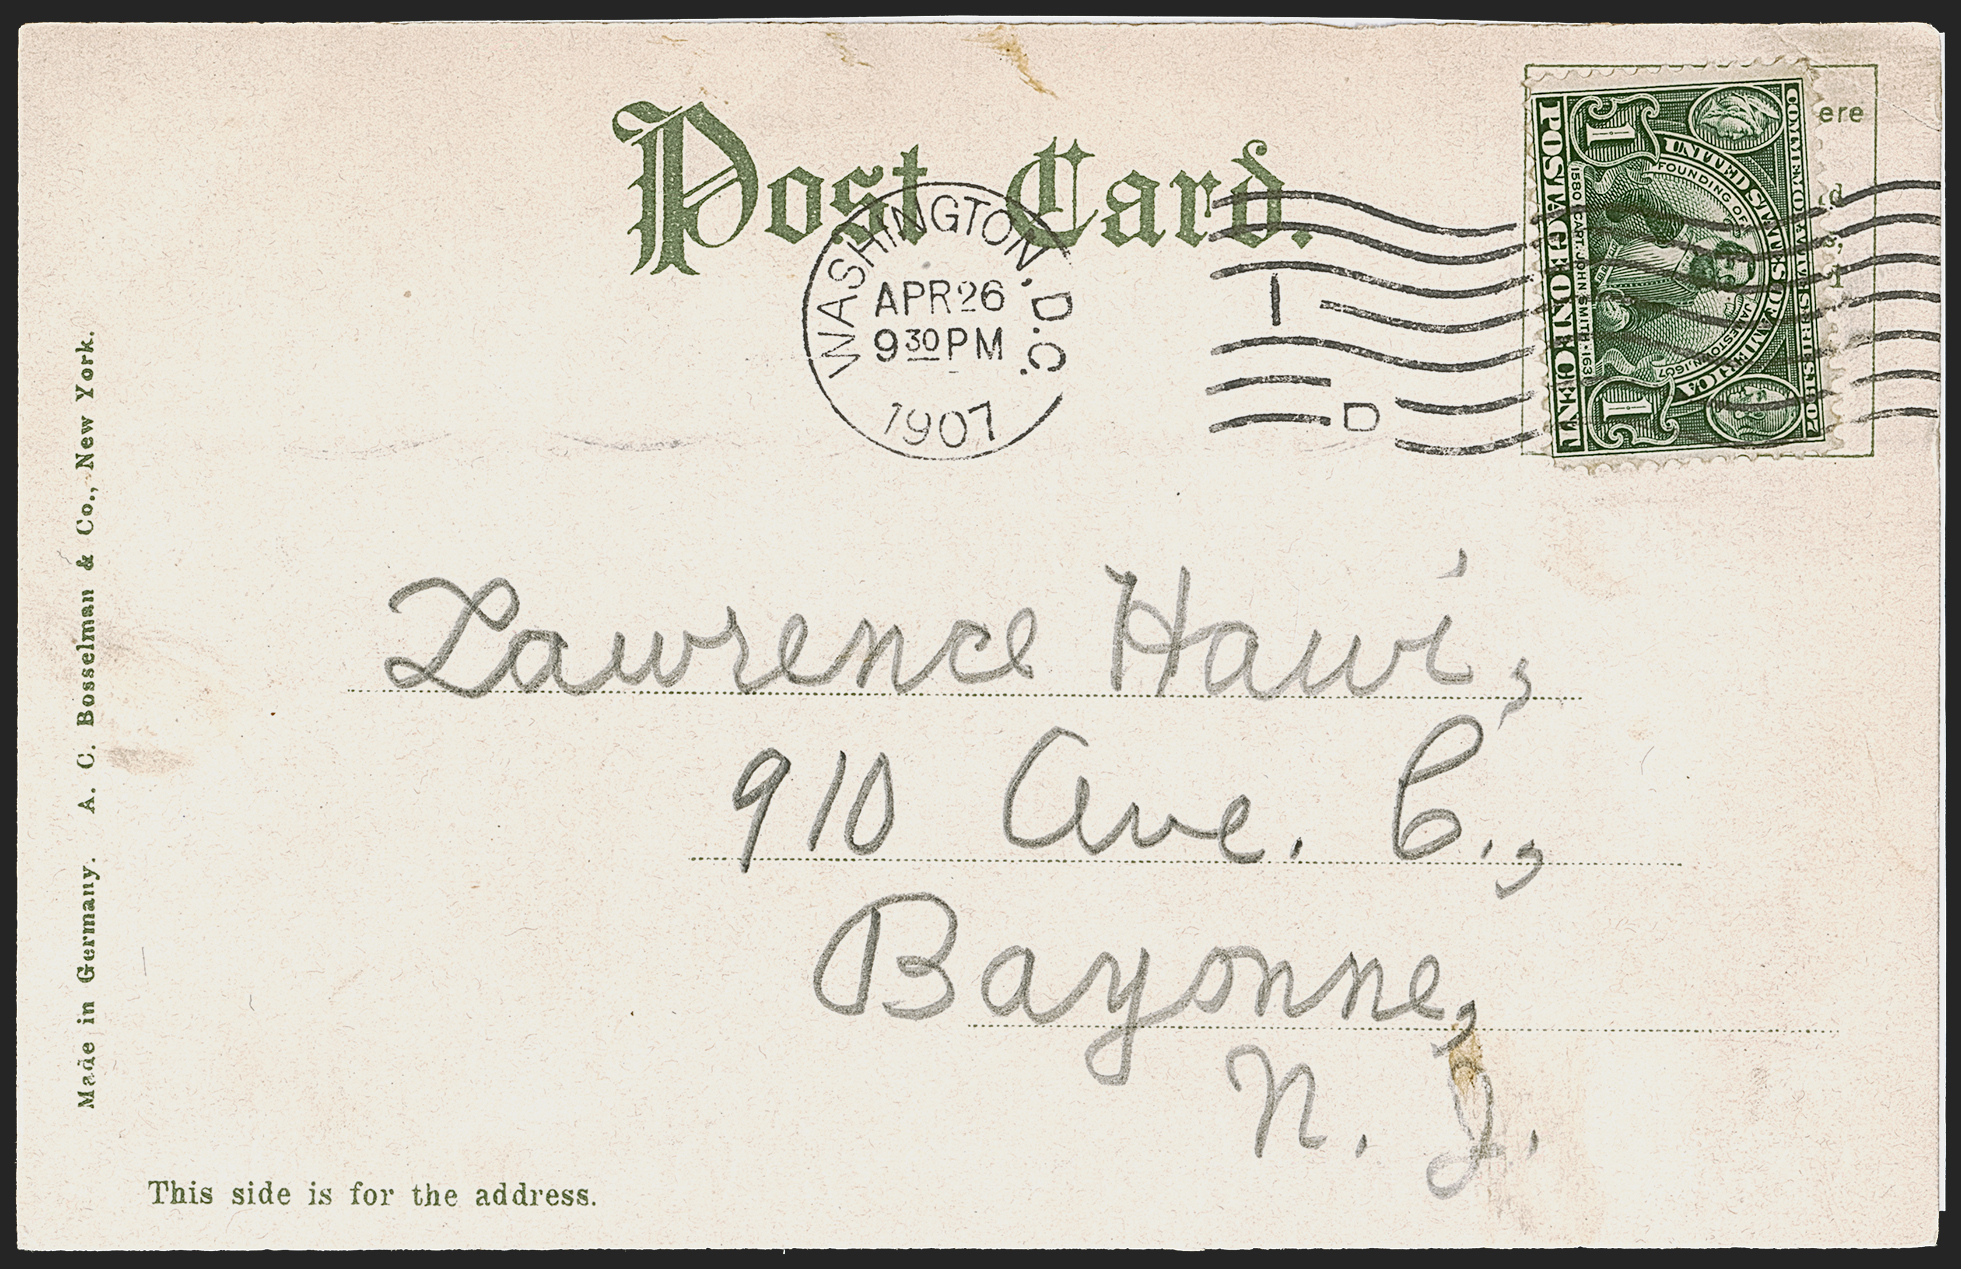 Post Card.
WASHINGTON, D.C.
APR 26
9 30 PM
1907
1
D
ere
COMMEMORATIVE SERIES 1907
UNITED STATES OF AMERICA
FOUNDING OF JAMESTOWN 1607
1580 CAPT. JOHN SMITH 1631
1
1
POSTAGE ONE CENT
Lawrence Hawi,
910 Ave. C.,
Bayonne,
N. J.
Made in Germany. A. C. Bosselman & Co., New York.
This side is for the address.